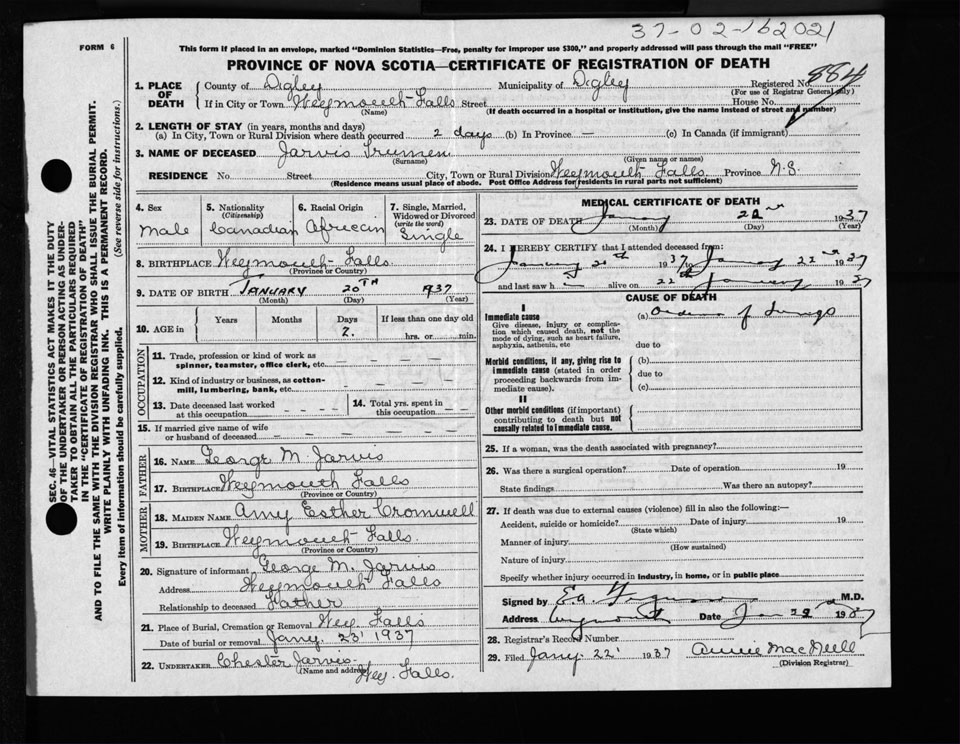 37-02-162021
FORM 6
This form if placed in an envelope, marked "Dominion Statistics—Free, penalty for improper use $300," and properly addressed will pass through the mail "FREE"
PROVINCE OF NOVA SCOTIA—CERTIFICATE OF REGISTRATION OF DEATH
1. PLACE OF DEATH
County of Digby Municipality of Digby Registered No. 884
(For use of Registrar General only)
If in City or Town Weymouth Falls Street House No.
(Name) (If death occurred in a hospital or institution, give the name instead of street and number)
2. LENGTH OF STAY (in years, months and days)
(a) In City, Town or Rural Division where death occurred 2 days (b) In Province — (c) In Canada (if immigrant)
3. NAME OF DECEASED Jarvis Trumen
(Surname) (Given name or names)
RESIDENCE No. Street City, Town or Rural Division Weymouth Falls Province N.S.
(Residence means usual place of abode. Post Office Address for residents in rural parts not sufficient)
4. Sex
Male
5. Nationality
(Citizenship)
Canadian
6. Racial Origin
African
7. Single, Married, Widowed or Divorced
(write the word)
Single
8. BIRTHPLACE Weymouth Falls
(Province or Country)
9. DATE OF BIRTH JANUARY 20TH 1937
(Month) (Day) (Year)
10. AGE in
Years Months Days If less than one day old
2. hrs. or min.
OCCUPATION
11. Trade, profession or kind of work as
spinner, teamster, office clerk, etc.
12. Kind of industry or business, as cotton-
mill, lumbering, bank, etc.
13. Date deceased last worked
at this occupation
14. Total yrs. spent in
this occupation
15. If married give name of wife
or husband of deceased
FATHER
16. NAME George M. Jarvis
17. BIRTHPLACE Weymouth Falls
(Province or Country)
MOTHER
18. MAIDEN NAME Amy Esther Cromwell
19. BIRTHPLACE Weymouth Falls.
(Province or Country)
20. Signature of informant George M. Jarvis
Address Weymouth Falls
Relationship to deceased Father
21. Place of Burial, Cremation or Removal Wey. Falls
Date of burial or removal Jany. 23' 1937
22. UNDERTAKER Chester Jarvis
(Name and address) Wey. Falls.
MEDICAL CERTIFICATE OF DEATH
23. DATE OF DEATH January 22nd 1937
(Month) (Day) (Year)
24. I HEREBY CERTIFY that I attended deceased from:
January 20th 1937 to January 22nd 1937
and last saw h alive on 22nd January 1937
CAUSE OF DEATH
I
Immediate cause
Give disease, injury or complica-
tion which caused death, not the
mode of dying, such as heart failure,
asphyxia, asthenia, etc
(a) Oedema of Lungs
due to
Morbid conditions, if any, giving rise to
immediate cause (stated in order
proceeding backwards from im-
mediate cause).
(b)
due to
(c)
II
Other morbid conditions (if important)
contributing to death but not
causally related to immediate cause.
25. If a woman, was the death associated with pregnancy?
26. Was there a surgical operation? Date of operation 19
State findings Was there an autopsy?
27. If death was due to external causes (violence) fill in also the following:—
Accident, suicide or homicide? Date of injury 19
(State which)
Manner of injury
(How sustained)
Nature of injury
Specify whether injury occurred in industry, in home, or in public place
Signed by M.D.
Address Weymouth Date Jan 22nd 1937
28. Registrar's Record Number
29. Filed Jany. 22' 1937 Annie MacNeill
(Division Registrar)
SEC. 46—VITAL STATISTICS ACT MAKES IT THE DUTY
OF THE UNDERTAKER OR PERSON ACTING AS UNDER-
TAKER TO OBTAIN ALL THE PARTICULARS REQUIRED
IN THE "CERTIFICATE OF REGISTRATION OF DEATH"
AND TO FILE THE SAME WITH THE DIVISION REGISTRAR WHO SHALL ISSUE THE BURIAL PERMIT.
WRITE PLAINLY WITH UNFADING INK. THIS IS A PERMANENT RECORD.
Every item of information should be carefully supplied. (See reverse side for instructions.)